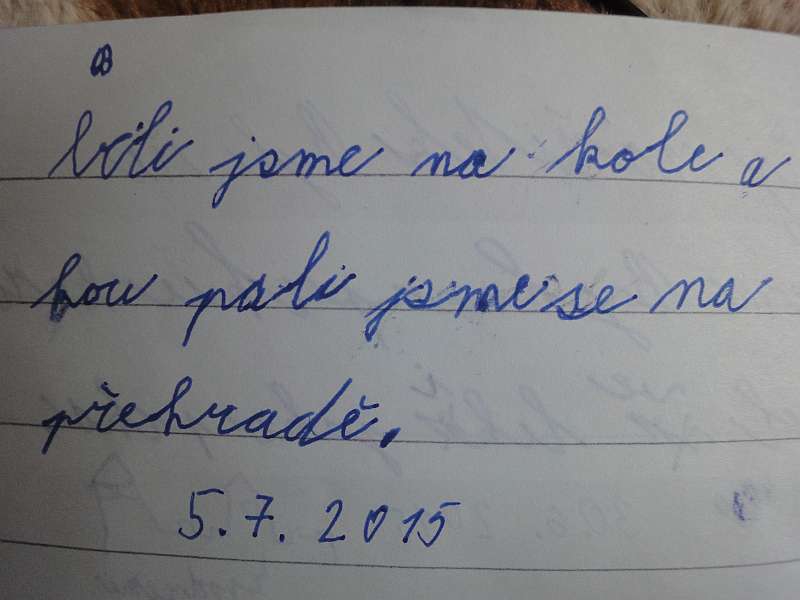 B
bili jsme na kole a
kou pali jsme se na
přehradě.
5.7. 2015